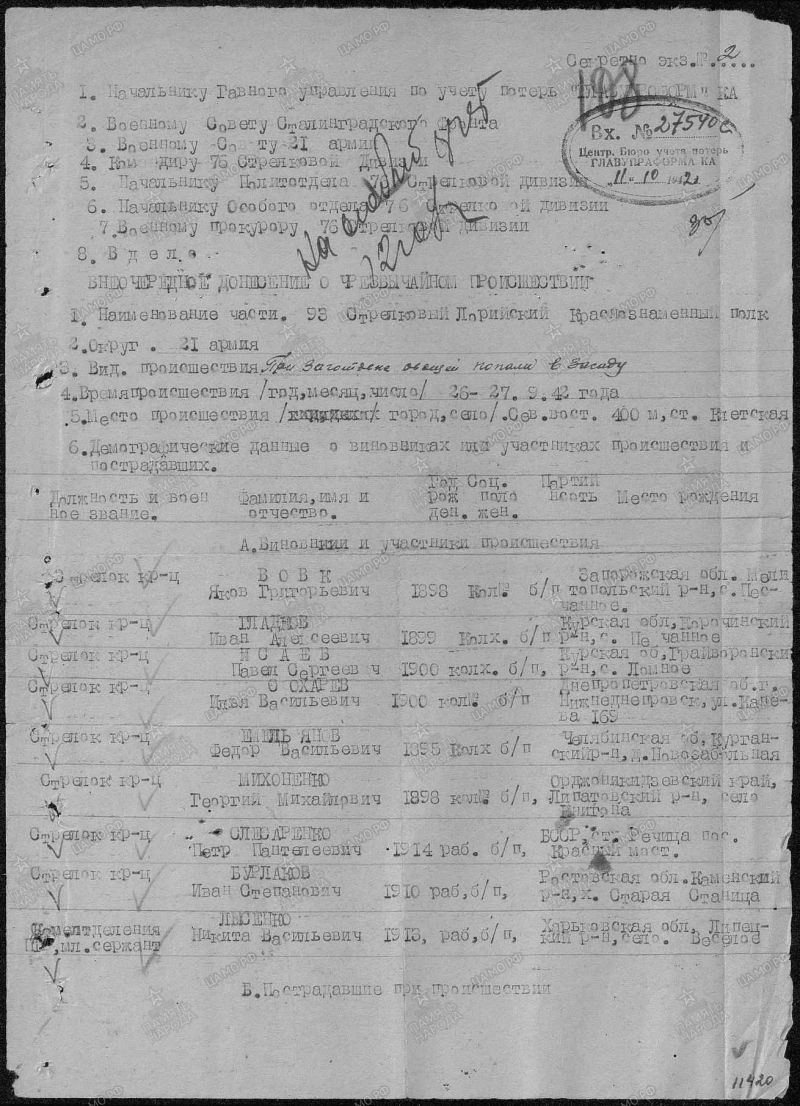 Секретно экз.№.2....
108
1. Начальнику Гавного управления по учету потерь "ГЛАВУПРОФОРМ" КА
2. Военному Совету Сталинградского Фронта
3. Военному Совету 21 армии
4. Командиру 76 Стрелковой Дивизии
5. Начальнику Политотдела 76 Стрелковой дивизии
6. Начальнику Особого отдела 76 Стрелковой дивизии
7. Военному прокурору 76 Стрелковой дивизии
8. В дело
Вх. № 27540с
Центр. Бюро учета потерь
ГЛАВУПРАФОРМА КА
"11"-10 1942
ВНЕОЧЕРЕДНОЕ ДОНЕСЕНИЕ О ЧРЕЗВЫЧАЙНОМ ПРОИСШЕСТВИИ
1. Наименование части. 93 Стрелковый Лорийский Краснознаменный полк
2.Округ. 21 армия
3. Вид. происшествия При заготовке овощей попали в засаду
4.Времяпроисшествия /год,месяц,число/ 26-27.9.42 года
5.Место происшествия / город,село/.Сев.вост. 400 м,ст. Клетская
6.Демографические данные о виновниках или участниках происшествия и
пострадавших.
Должность и воен ное звание. Фамилия,имя и отчество. Год рож ден. Соц. поло жен. Партий ность Место рождения
А.Виновники и участники происшествия
Стрелок кр-ц ВОВК Запорожская обл. Мели
Яков Григорьевич 1898 Кол. б/п топольский р-н,с.Пес-
чанное.
Стрелок кр-ц ГЛАДКОВ Курская обл,Корочинский
Иван Алексеевич 1899 Колх. б/п р-н,с. Песчанное
Стрелок кр-ц ИСАЕВ Курская об,Грайворонский
Павел Сергеевич 1900 колх. б/п, р-н,с. Ломное
Стрелок кр-ц Днепропетровская об.г.
Илья Васильевич 1900 кол. б/п Нижнеднепровск,ул.Кане-
ва 169
Стрелок кр-ц ЕМЕЛЬЯНОВ Челябинская об,Курган-
Федор Васильевич 1895 Колх б/п скийр-н,д.Новозабельная
Стрелок кр-ц МИХОНЕНКО Орджоникидзевский край,
Георгий Михайлович 1898 кол. б/п, Липатовский р-н, село
Стрелок кр-ц СЛЕСАРЕНКО БССР,ст. Речица пос.
Петр Пантелеевич 1914 раб. б/п, Красный мост.
Стрелок кр-ц БУРЛАКОВ Ростовская обл.Каменский
Иван Степанович 1910 раб,б/п, р-н,х. Старая Станица
Комотделения ЛЫСЕНКО Харьковская обл, Липец-
мл.сержант Никита Васильевич 1913, раб,б/п, кий р-н,село. Веселое
Б.Пострадавшие при происшествии
11420